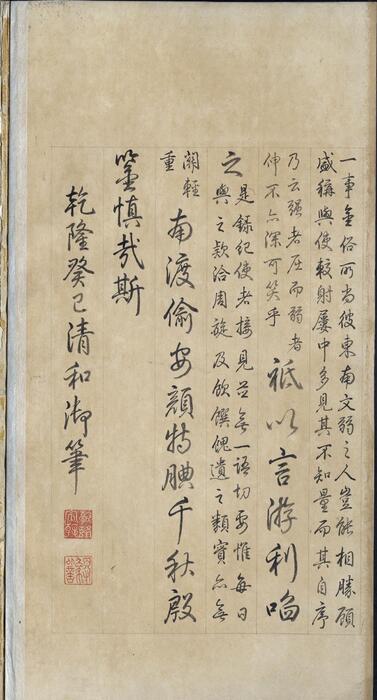 一事金俗所尚彼東南文弱之人豈能相勝願
盛稱與使較射屢中多見其不知量而其自序
乃云强者屈而弱者
伸不亦深可笑乎
祗以言游利啗
之
是錄紀使者接見並無一語切要惟每日
與之欵洽周旋及飲饌餽遺之類實亦無
關輕
重
南渡偷安顔特腆千秋殷
鑒慎哉斯
乾隆癸巳清和御筆